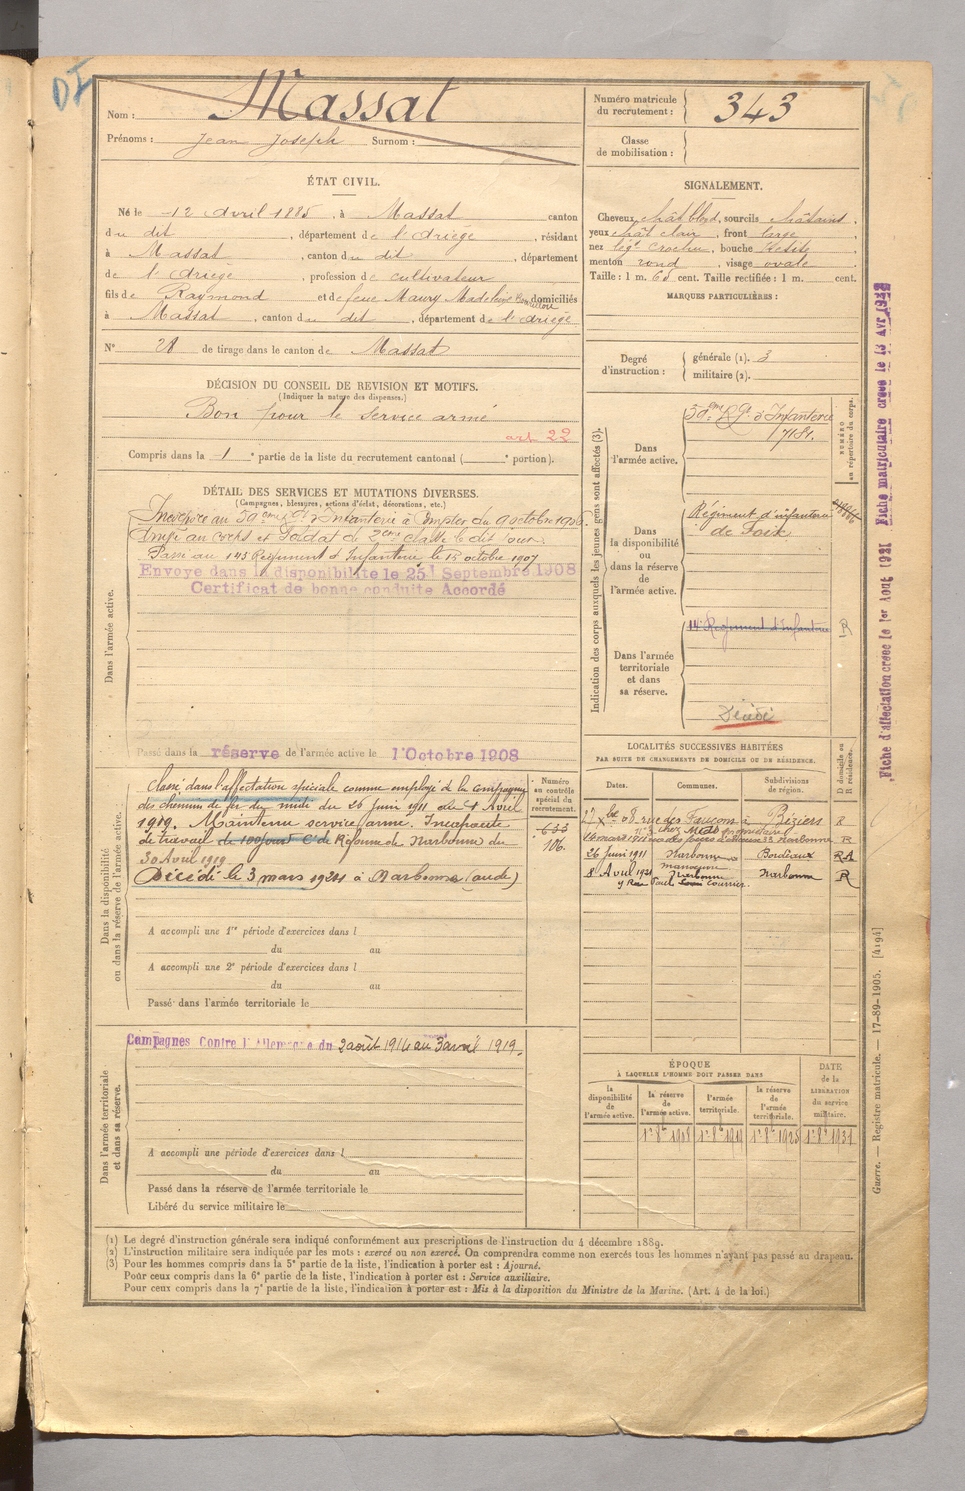 DI
Nom : Massat
Prénoms : Jean Joseph Surnom :
Numéro matricule du recrutement : 343
Classe de mobilisation :
ÉTAT CIVIL.
Né le 12 Avril 1885, à Massat canton
du dit, département de l'Ariège, résidant
à Massat, canton du dit, département
de l'Ariège, profession de cultivateur
fils de Raymond et de feue Maury Madeleine domiciliés
à Massat, canton du dit, département de l'Ariège
N° 28 de tirage dans le canton de Massat
SIGNALEMENT.
Cheveux chât blond, sourcils châtains,
yeux chât clair, front large
nez légt crochu, bouche petite
menton rond, visage ovale
Taille : 1 m. 65 cent. Taille rectifiée : 1 m. cent.
MARQUES PARTICULIÈRES :
Degré d'instruction : générale (1). 3
militaire (2).
DÉCISION DU CONSEIL DE REVISION ET MOTIFS.
(Indiquer la nature des dispenses.)
Bon pour le service armé
art. 22
Compris dans la 1e partie de la liste du recrutement cantonal ( e portion).
DÉTAIL DES SERVICES ET MUTATIONS DIVERSES.
(Campagnes, blessures, actions d'éclat, décorations, etc.)
Dans l'armée active.
Incorporé au 59eme Rgt d'Infanterie à compter du 9 octobre 1906.
au corps et Soldat de 2eme classe le dit jour.
Passé au 143 Régiment d'Infanterie le 15 octobre 1907
Envoyé dans la disponibilité le 25 Septembre 1908
Certificat de bonne conduite Accordé
Passé dans la réserve de l'armée active le 1 Octobre 1908
Dans la disponibilité ou dans la réserve de l'armée active.
Classé dans l'affectation spéciale comme employé de la compagnie
des chemins de fer du midi du 26 Juin 1911 au 4 Avril
1919. Maintenu service armé. Incapacité
de travail Con de Réforme de Narbonne du
30 Avril 1919.
Décédé le 3 mars 1921 à Narbonne (aude)
Numéro au contrôle spécial du recrutement.
633
106
A accompli une 1re période d'exercices dans l
du au
A accompli une 2e période d'exercices dans l
du au
Passé dans l'armée territoriale le
Dans l'armée territoriale et dans sa réserve.
Campagnes Contre l'Allemagne du 2 août 1914 au 3 avril 1919.
A accompli une période d'exercices dans l
du au
Passé dans la réserve de l'armée territoriale le
Libéré du service militaire le
Indication des corps auxquels les jeunes gens sont affectés (3).
NUMÉRO au répertoire du corps.
Dans l'armée active.
59eme Rgt d'Infanterie
7181.
Dans la disponibilité ou dans la réserve de l'armée active.
Régiment d'infanterie
de Foix
Dans l'armée territoriale et dans sa réserve.
14e Régiment d'Infanterie
R
Décédé
LOCALITÉS SUCCESSIVES HABITÉES
PAR SUITE DE CHANGEMENTS DE DOMICILE OU DE RÉSIDENCE.
Dates. Communes. Subdivisions de région. D domicile ou R résidence.
rue des Faucons à Béziers R
Narbonne R
26 Juin 1911 Narbonne Bordeaux RA
8 Avril 1921 Narbonne Narbonne R
9 Rue Paul Louis Courrier
ÉPOQUE
À LAQUELLE L'HOMME DOIT PASSER DANS
la disponibilité de l'armée active. la réserve de l'armée active. l'armée territoriale. la réserve de l'armée territoriale. DATE de la LIBÉRATION du service militaire.
1er 8bre 1908 1er 8bre 1918 1er 8bre 1925 1er 8bre 1931
Fiche d'affectation créée le 1er Aout 1921 Fiche matriculaire créée le 13 Avr 1922
Guerre. — Registre matricule. — 17-89-1905. [4194]
(1) Le degré d'instruction générale sera indiqué conformément aux prescriptions de l'instruction du 4 décembre 1889.
(2) L'instruction militaire sera indiquée par les mots : exercé ou non exercé. On comprendra comme non exercés tous les hommes n'ayant pas passé au drapeau.
(3) Pour les hommes compris dans la 5e partie de la liste, l'indication à porter est : Ajourné.
Pour ceux compris dans la 6e partie de la liste, l'indication à porter est : Service auxiliaire.
Pour ceux compris dans la 7e partie de la liste, l'indication à porter est : Mis à la disposition du Ministre de la Marine. (Art. 4 de la loi.)